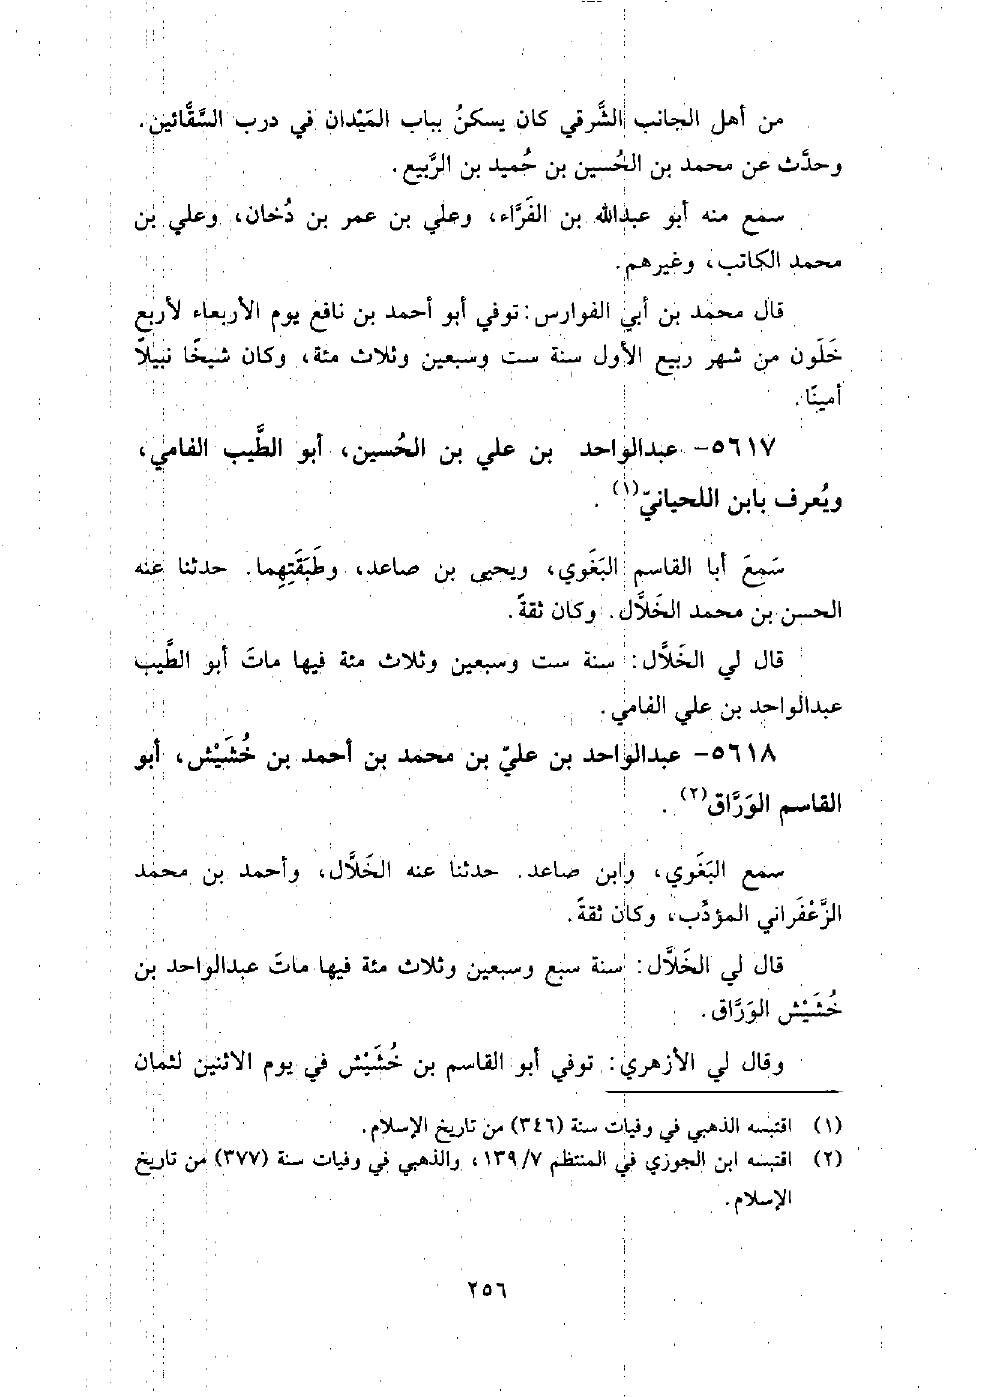 من أهل الجانب الشَّرقي كان يسكنُ بباب المَيْدان في درب السَّقَّائين.
وحدَّث عن محمد بن الحُسين بن حُميد بن الرَّبيع.
سمع منه أبو عبدالله بن الفَرَّاء، وعلي بن عمر بن دُخان، وعلي بن
محمد الكاتب، وغيرهم.
قال محمد بن أبي الفوارس: توفي أبو أحمد بن نافع يوم الأربعاء لأربع
خَلَون من شهر ربيع الأول سنة ست وسبعين وثلاث مئة، وكان شيخًا نبيلاً
أمينًا.
٥٦١٧- عبدالواحد بن علي بن الحُسين، أبو الطَّيب الفامي،
ويُعرف بابن اللحيانيّ(١).
سَمِعَ أبا القاسم البَغَوي، ويحيى بن صاعد، وطَبَقَتِهِما. حدثنا عنه
الحسن بن محمد الخَلَّال. وكان ثقةً.
قال لي الخَلَّال: سنة ست وسبعين وثلاث مئة فيها ماتَ أبو الطَّيب
عبدالواحد بن علي الفامي.
٥٦١٨- عبدالواحد بن عليّ بن محمد بن أحمد بن خُشَيْش، أبو
القاسم الوَرَّاق(٢).
سمع البَغَوي، وابن صاعد. حدثنا عنه الخَلَّال، وأحمد بن محمد
الزَّعْفَراني المؤدِّب، وكان ثقةً.
قال لي الخَلَّال: سنة سبع وسبعين وثلاث مئة فيها ماتَ عبدالواحد بن
خُشَيْش الوَرَّاق.
وقال لي الأزهري: توفي أبو القاسم بن خُشَيْش في يوم الاثنين لثمان
(١) اقتبسه الذهبي في وفيات سنة (٣٤٦) من تاريخ الإسلام.
(٢) اقتبسه ابن الجوزي في المنتظم ٧/ ١٣٩، والذهبي في وفيات سنة (٣٧٧) من تاريخ
الإسلام.
٢٥٦